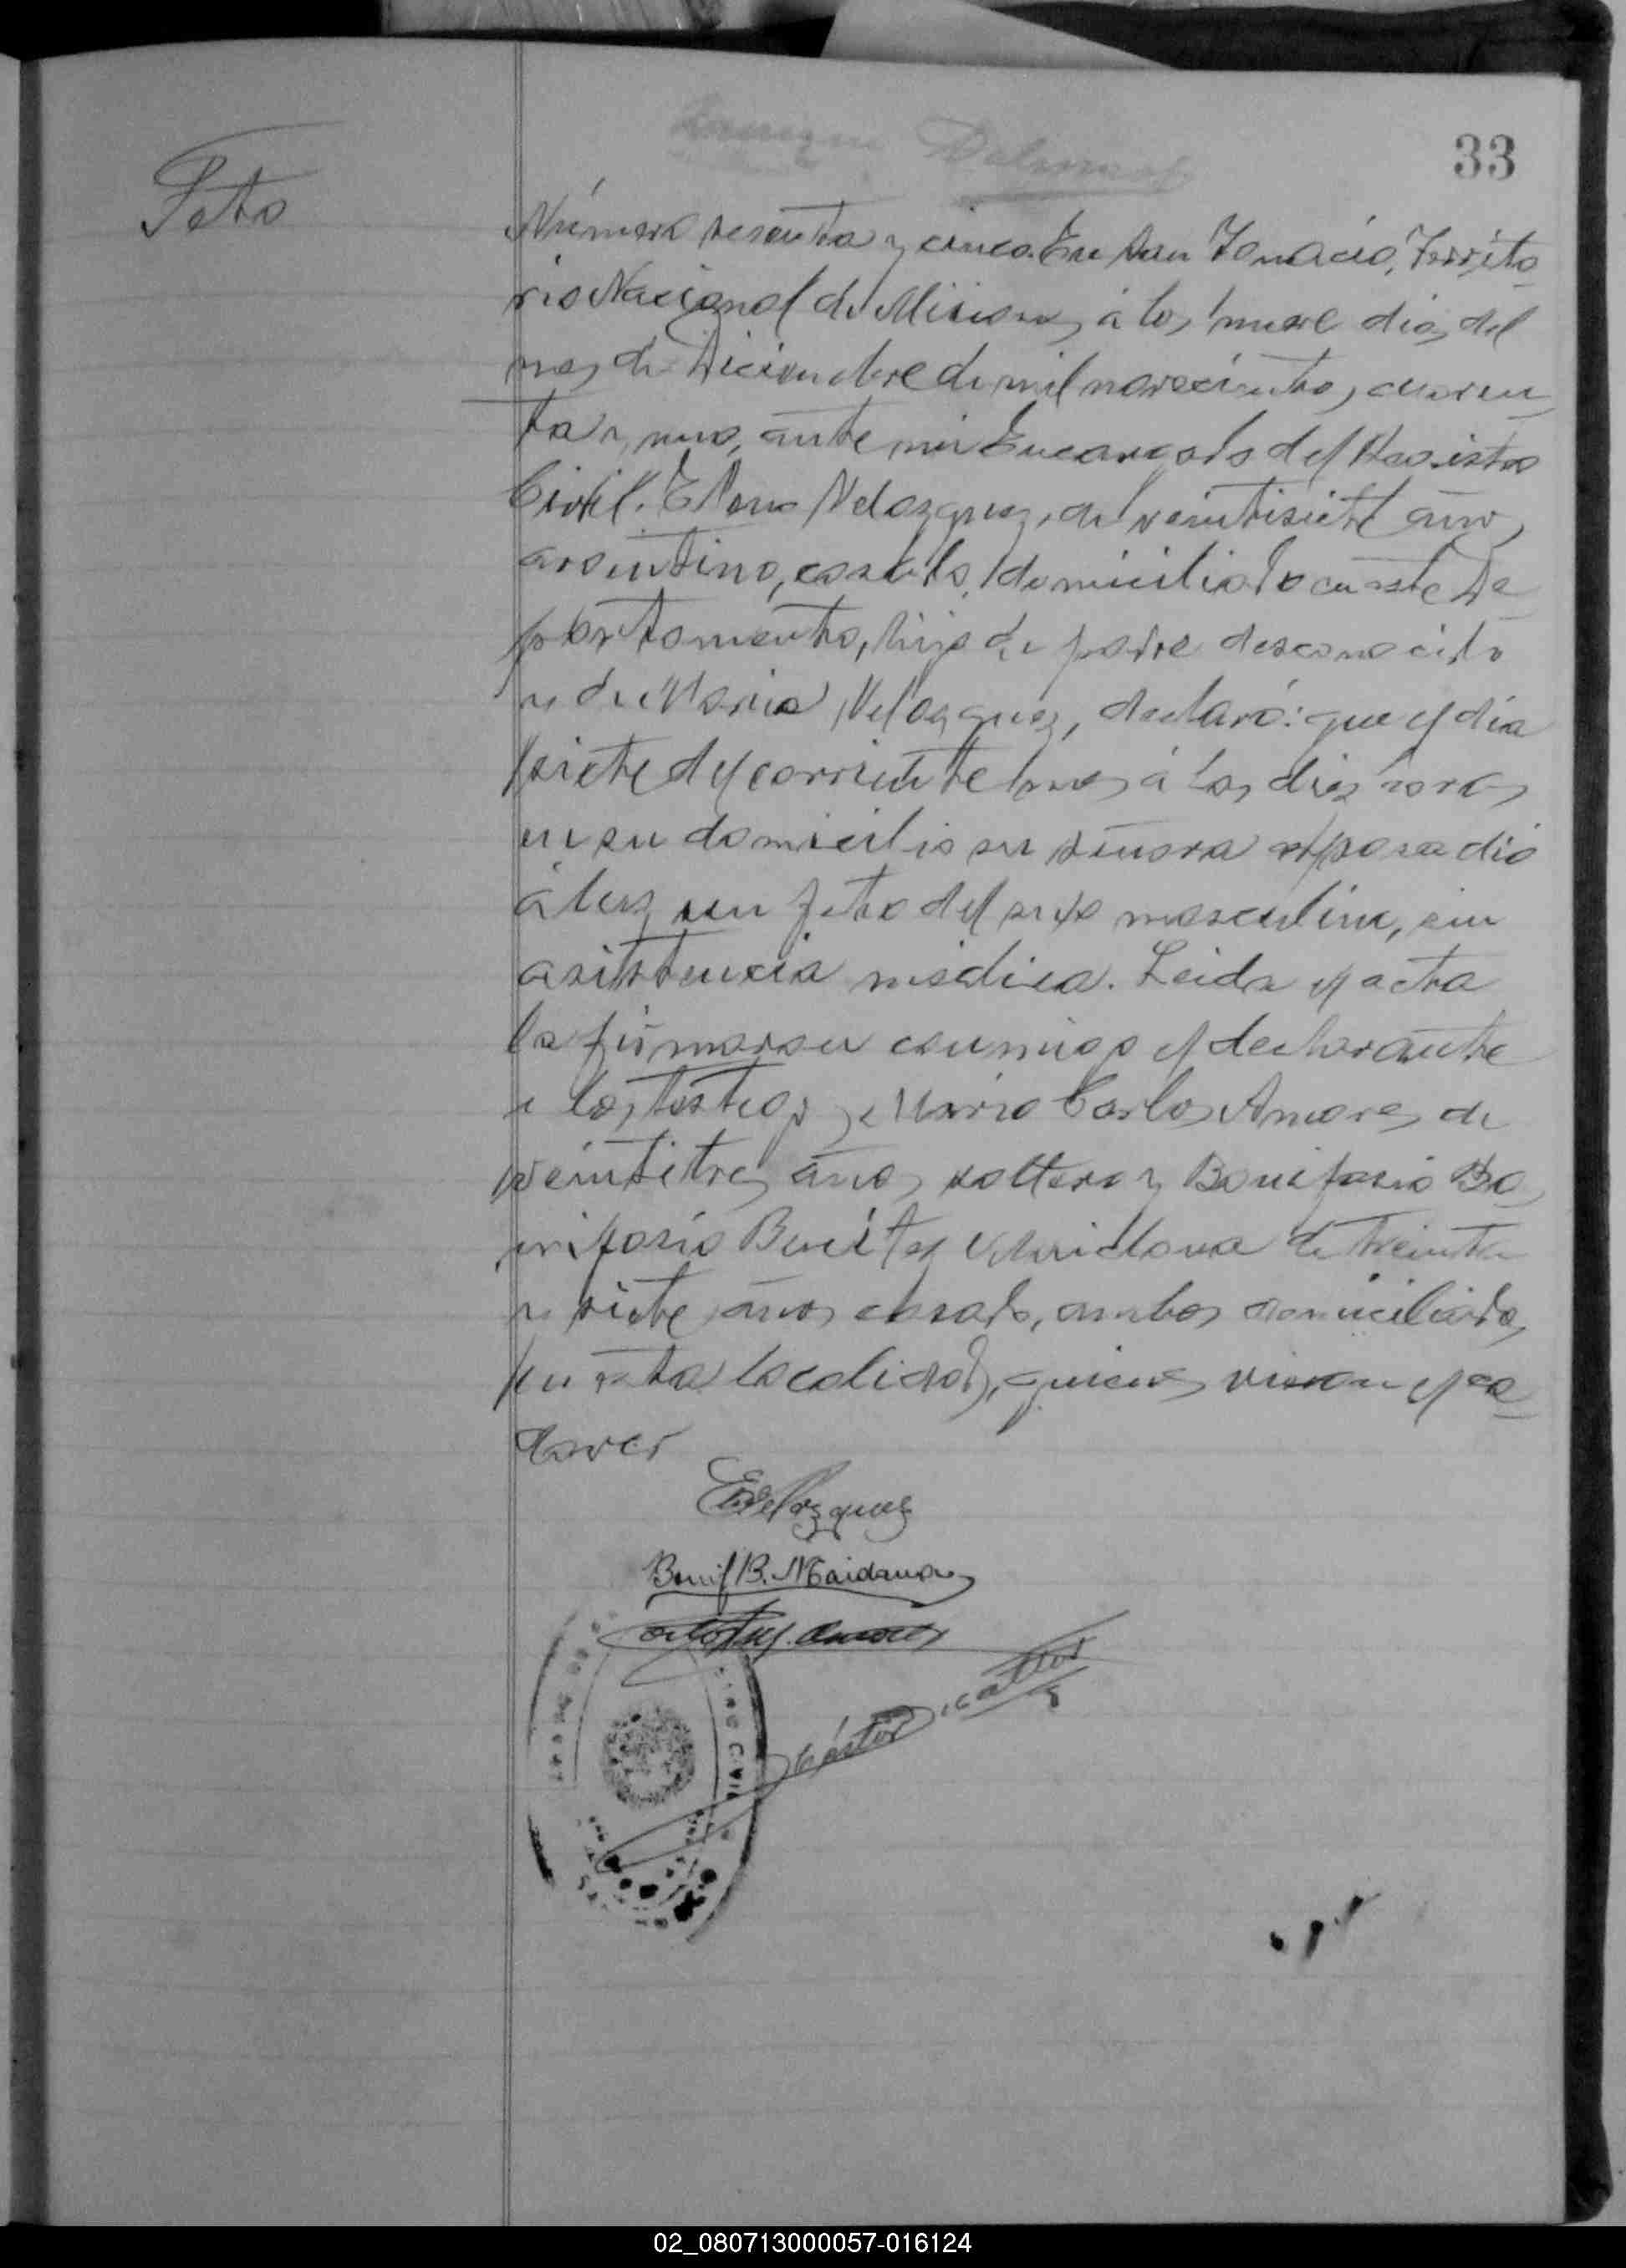 33
Feto
Número sesenta y cinco. En San Ignacio, Territo
rio Nacional de Misiones, á los nueve dias del
mes de Diciembre de mil novecientos cuaren
ta y uno, ante mi Encargado del Registro
Civil. Velazquez, de veintisiete años,
argentino, casado, domiciliado en este De
partamento, hijo de padre desconocido
y de Maria Velazquez, declaró: que el dia
siete del corriente mes á las diez horas
en su domicilio su señora esposa dió
á luz un feto del sexo masculino, sin
asistencia médica. Leida el acta
la firmaron conmigo el declarante
y los testigos Mario Carlos Amores de
veintitres años soltero y Bonifasio Bo
nifasio Benitez Maidana de treinta
y siete años casado, ambos domiciliados
en esta localidad, quienes vieron el ca
daver
EVelazquez
Bonif B. Maidana
CIVIL
02_080713000057-016124